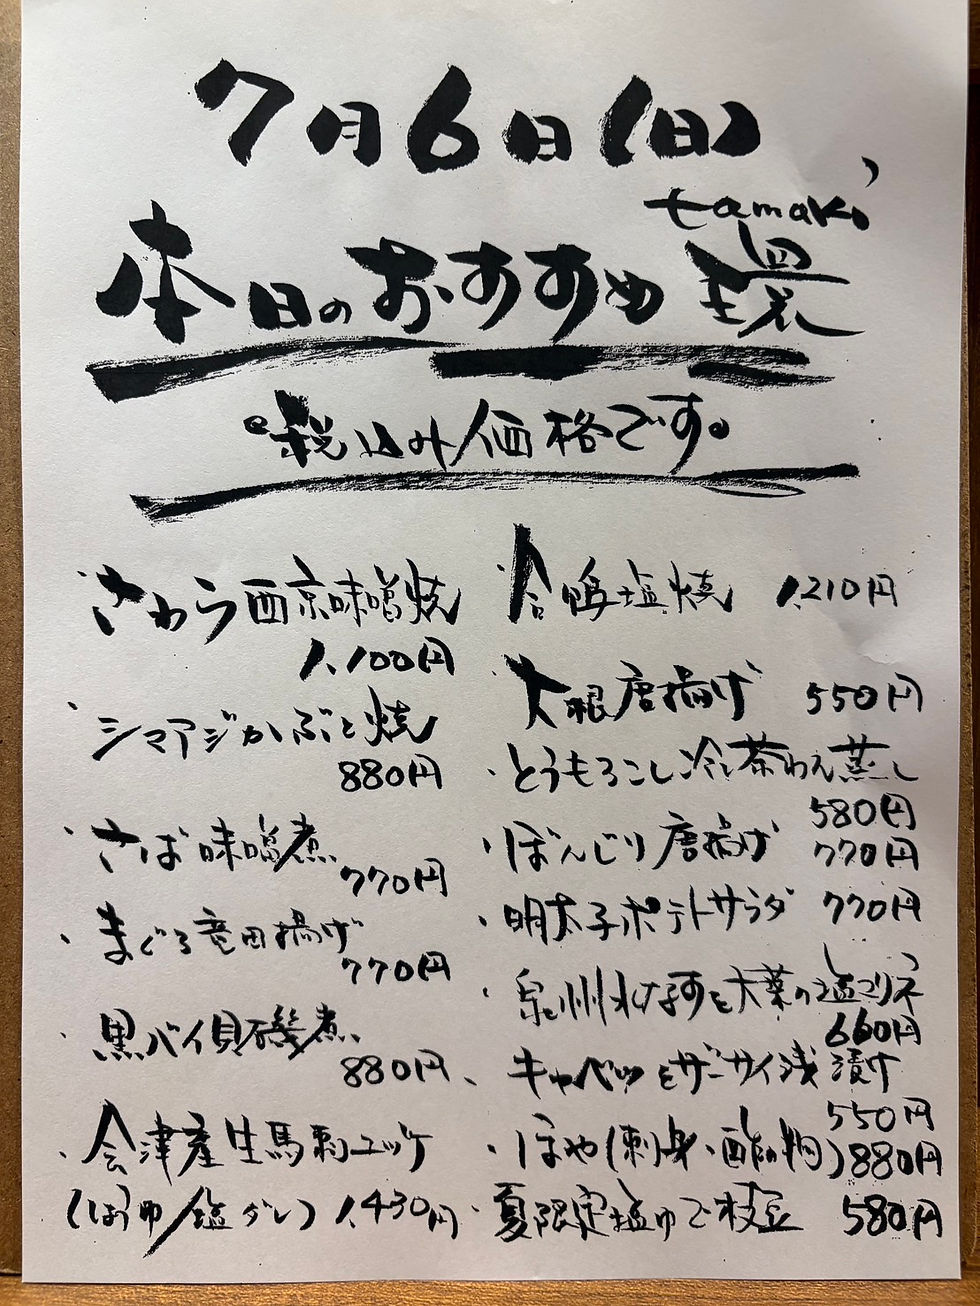 7月6日(日)
tamaki
本日のおすすめ 環
税込み価格です。
・さわら西京味噌焼
1,100円
・シマアジかぶと焼
880円
・さば味噌煮
770円
・まぐろ竜田揚げ
770円
・黒バイ貝磯煮
880円
・会津産生馬刺ユッケ
(しょうゆ/塩ダレ) 1,430円
・合鴨塩焼 1,210円
・大根唐揚げ 550円
・とうもろこし冷し茶わん蒸し
580円
・ぼんじり唐揚げ 770円
・明太子ポテトサラダ 770円
・泉州水なすと大葉の塩マリネ
660円
・キャベツとザーサイ浅漬け
550円
・ほや(刺身・酢の物) 880円
・夏限定塩ゆで枝豆 580円